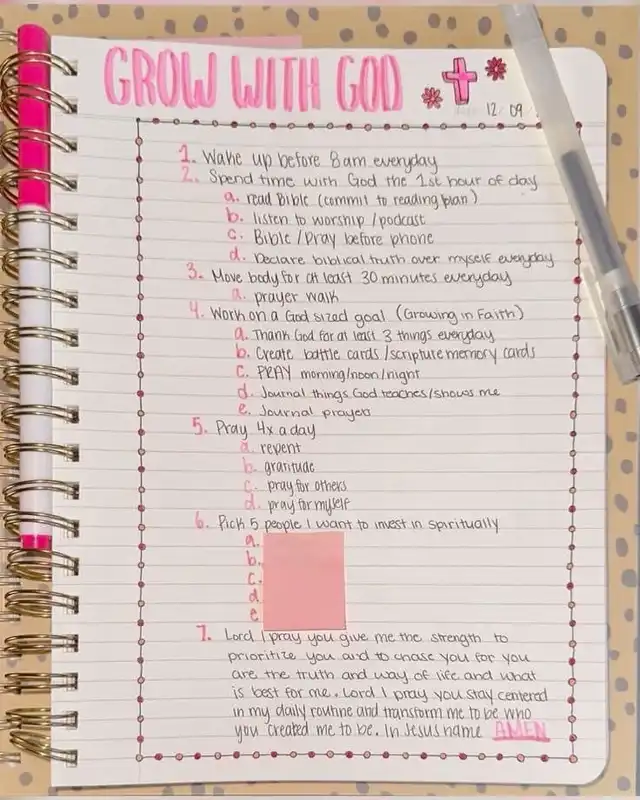 GROW WITH GOD
12 09
1. Wake up before 8am everyday
2. Spend time with God the 1st hour of day
a. read Bible (commit to reading plan)
b. listen to worship/podcast
c. Bible/Pray before phone
d. Declare biblical truth over myself everyday
3. Move body for at least 30 minutes everyday
a. prayer walk
4. Work on a God sized goal (Growing in Faith)
a. Thank God for at least 3 things everyday
b. Create battle cards/scripture memory cards
c. PRAY morning/noon/night
d. Journal things God teaches/shows me
e. Journal prayers
5. Pray 4x a day
a. repent
b. gratitude
c. pray for others
d. pray for myself
6. Pick 5 people I want to invest in spiritually
a.
b.
c.
d.
e
7. Lord I pray you give me the strength to
prioritize you and to chase you for you
are the truth and way of life and what
is best for me. Lord I pray you stay centered
in my daily routine and transform me to be who
you created me to be. In Jesus name AMEN